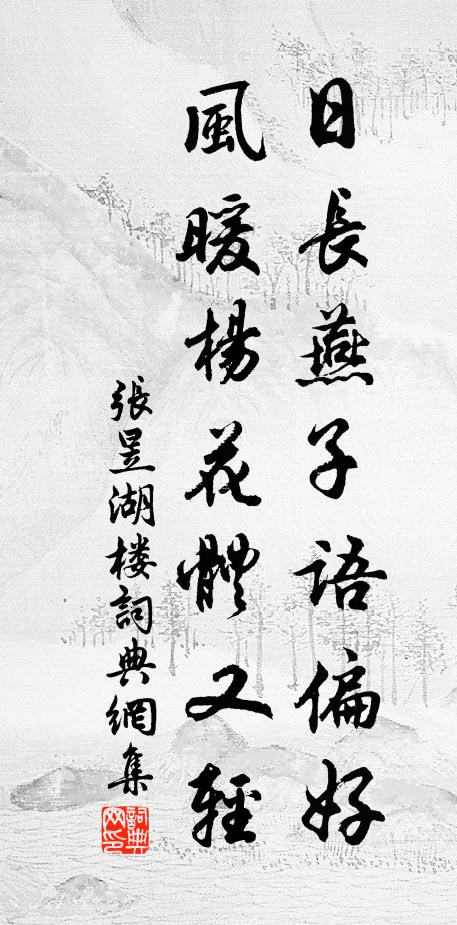 日長燕子語偏好
風暖楊花體又輕
張昱湖楼詞典網集
詞典
网印